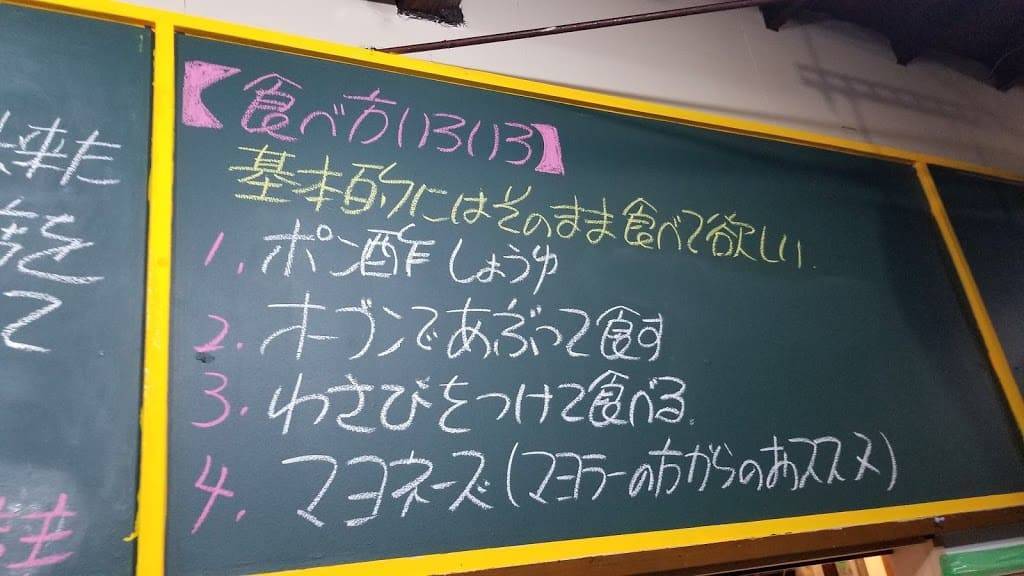 【食べ方いろいろ】
基本的にはそのまま食べて欲しい.
1. ポン酢 しょうゆ
2. オーブンであぶって食す
3. わさびをつけて食べる.
4. マヨネーズ(マヨラーの方からのおススメ)
来た
を
て